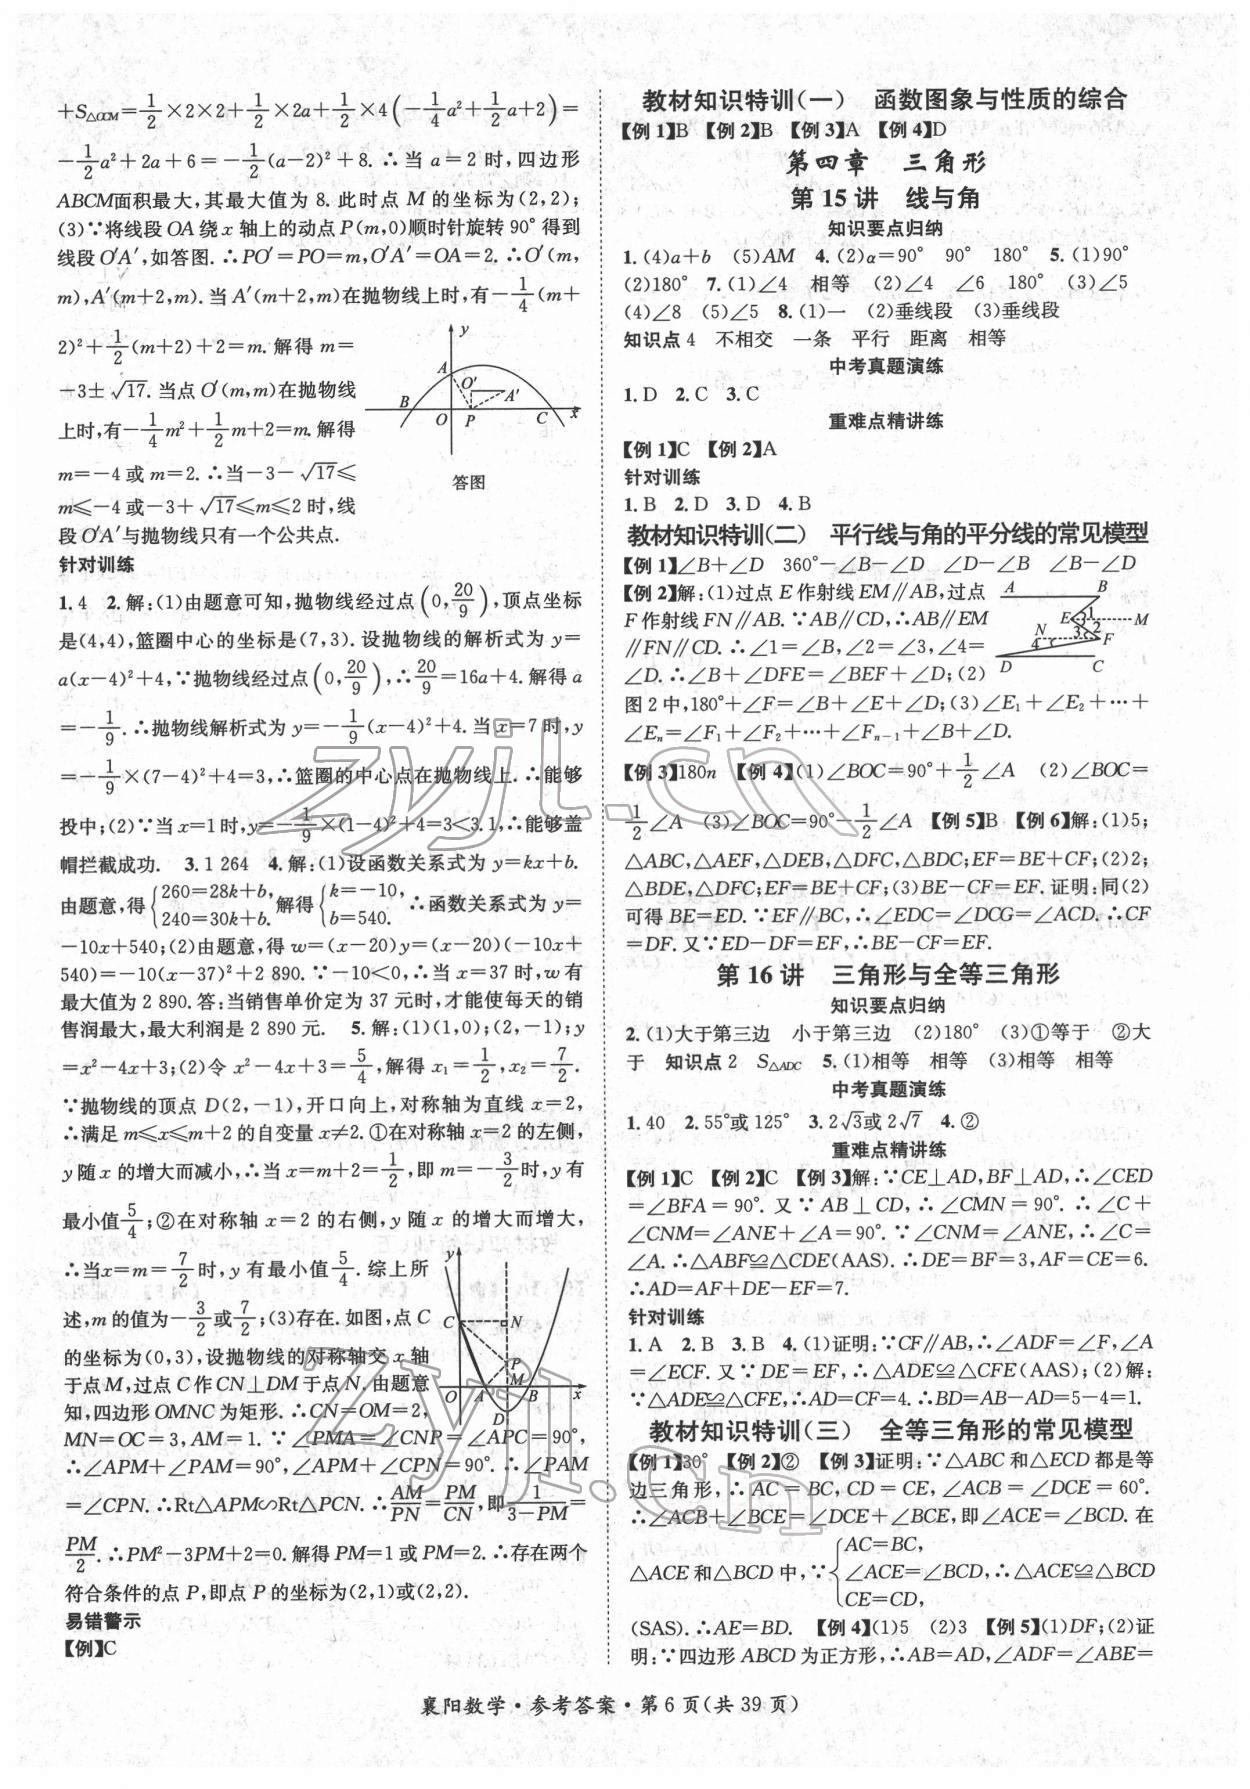 +S△OCM=1/2×2×2+1/2×2a+1/2×4(-1/4a²+1/2a+2)=
-1/2a²+2a+6=-1/2(a-2)²+8.∴当a=2时,四边形
ABCM面积最大,其最大值为8.此时点M的坐标为(2,2);
(3)∵将线段OA绕x轴上的动点P(m,0)顺时针旋转90°得到
线段O′A′,如答图.∴PO′=PO=m,O′A′=OA=2.∴O′(m,
m),A′(m+2,m).当A′(m+2,m)在抛物线上时,有-1/4(m+
2)²+1/2(m+2)+2=m.解得m=
-3±√17.当点O′(m,m)在抛物线
上时,有-1/4m²+1/2m+2=m.解得
m=-4或m=2.∴当-3-√17≤
m≤-4或-3+√17≤m≤2时,线
段O′A′与抛物线只有一个公共点.
y
A
O′
A′
B
O
P
C
x
答图
针对训练
1.4 2.解:(1)由题意可知,抛物线经过点(0,20/9),顶点坐标
是(4,4),篮圈中心的坐标是(7,3).设抛物线的解析式为y=
a(x-4)²+4,∵抛物线经过点(0,20/9),∴20/9=16a+4.解得a
=-1/9.∴抛物线解析式为y=-1/9(x-4)²+4.当x=7时,y
=-1/9×(7-4)²+4=3,∴篮圈的中心点在抛物线上.∴能够
投中;(2)∵当x=1时,y=-1/9×(1-4)²+4=3<3.1,∴能够盖
帽拦截成功. 3.1 264 4.解:(1)设函数关系式为y=kx+b.
由题意,得{260=28k+b, 240=30k+b.解得{k=-10, b=540.∴函数关系式为y=
-10x+540;(2)由题意,得w=(x-20)y=(x-20)(-10x+
540)=-10(x-37)²+2 890.∵-10<0,∴当x=37时,w有
最大值为2 890.答:当销售单价定为37元时,才能使每天的销
售润最大,最大利润是2 890元. 5.解:(1)(1,0);(2,-1);y
=x²-4x+3;(2)令x²-4x+3=5/4,解得x₁=1/2,x₂=7/2.
∵抛物线的顶点D(2,-1),开口向上,对称轴为直线x=2,
∴满足m≤x≤m+2的自变量x≠2.①在对称轴x=2的左侧,
y随x的增大而减小,∴当x=m+2=1/2,即m=-3/2时,y有
最小值5/4;②在对称轴x=2的右侧,y随x的增大而增大,
∴当x=m=7/2时,y有最小值5/4.综上所
述,m的值为-3/2或7/2;(3)存在.如图,点C
的坐标为(0,3),设抛物线的对称轴交x轴
于点M,过点C作CN⊥DM于点N.由题意
知,四边形OMNC为矩形.∴CN=OM=2,
y
C
N
P
M
O
A
B
x
D
MN=OC=3,AM=1.∵∠PMA=∠CNP=∠APC=90°,
∴∠APM+∠PAM=90°,∠APM+∠CPN=90°.∴∠PAM
=∠CPN.∴Rt△APM∽Rt△PCN.∴AM/PN=PM/CN,即1/(3-PM)=
PM/2.∴PM²-3PM+2=0.解得PM=1或PM=2.∴存在两个
符合条件的点P,即点P的坐标为(2,1)或(2,2).
易错警示
【例】C
教材知识特训(一) 函数图象与性质的综合
【例1】B 【例2】B 【例3】A 【例4】D
第四章 三角形
第15讲 线与角
知识要点归纳
1.(4)a+b (5)AM 4.(2)α=90° 90° 180° 5.(1)90°
(2)180° 7.(1)∠4 相等 (2)∠4 ∠6 180° (3)∠5
(4)∠8 (5)∠5 8.(1)一 (2)垂线段 (3)垂线段
知识点4 不相交 一条 平行 距离 相等
中考真题演练
1.D 2.C 3.C
重难点精讲练
【例1】C 【例2】A
针对训练
1.B 2.D 3.D 4.B
教材知识特训(二) 平行线与角的平分线的常见模型
【例1】∠B+∠D 360°-∠B-∠D ∠D-∠B ∠B-∠D
【例2】解:(1)过点E作射线EM∥AB,过点
F作射线FN∥AB.∵AB∥CD,∴AB∥EM
∥FN∥CD.∴∠1=∠B,∠2=∠3,∠4=
∠D.∴∠B+∠DFE=∠BEF+∠D;(2)
A
B
E
1
2
M
N
3
4
F
D
C
图2中,180°+∠F=∠B+∠E+∠D;(3)∠E₁+∠E₂+…+
∠Eₙ=∠F₁+∠F₂+…+∠Fₙ₋₁+∠B+∠D.
【例3】180n 【例4】(1)∠BOC=90°+1/2∠A (2)∠BOC=
1/2∠A (3)∠BOC=90°-1/2∠A 【例5】B 【例6】解:(1)5;
△ABC,△AEF,△DEB,△DFC,△BDC;EF=BE+CF;(2)2;
△BDE,△DFC;EF=BE+CF;(3)BE-CF=EF.证明:同(2)
可得BE=ED.∵EF∥BC,∴∠EDC=∠DCG=∠ACD.∴CF
=DF.又∵ED-DF=EF,∴BE-CF=EF.
第16讲 三角形与全等三角形
知识要点归纳
2.(1)大于第三边 小于第三边 (2)180° (3)①等于 ②大
于 知识点2 S△ADC 5.(1)相等 相等 (3)相等 相等
中考真题演练
1.40 2.55°或125° 3.2√3或2√7 4.②
重难点精讲练
【例1】C 【例2】C 【例3】解:∵CE⊥AD,BF⊥AD,∴∠CED
=∠BFA=90°.又∵AB⊥CD,∴∠CMN=90°.∴∠C+
∠CNM=∠ANE+∠A=90°.∵∠CNM=∠ANE,∴∠C=
∠A.∴△ABF≌△CDE(AAS).∴DE=BF=3,AF=CE=6.
∴AD=AF+DE-EF=7.
针对训练
1.A 2.B 3.B 4.(1)证明:∵CF∥AB,∴∠ADF=∠F,∠A
=∠ECF.又∵DE=EF,∴△ADE≌△CFE(AAS);(2)解:
∵△ADE≌△CFE,∴AD=CF=4.∴BD=AB-AD=5-4=1.
教材知识特训(三) 全等三角形的常见模型
【例1】30° 【例2】② 【例3】证明:∵△ABC和△ECD都是等
边三角形,∴AC=BC,CD=CE,∠ACB=∠DCE=60°.
∴∠ACB+∠BCE=∠DCE+∠BCE,即∠ACE=∠BCD.在
△ACE和△BCD中,∵{AC=BC, ∠ACE=∠BCD, CE=CD,∴△ACE≌△BCD
(SAS).∴AE=BD. 【例4】(1)5 (2)3 【例5】(1)DF;(2)证
明:∵四边形ABCD为正方形,∴AB=AD,∠ADF=∠ABE=
襄阳数学·参考答案·第6页(共39页)
zyjl.cn
zyjl.cn